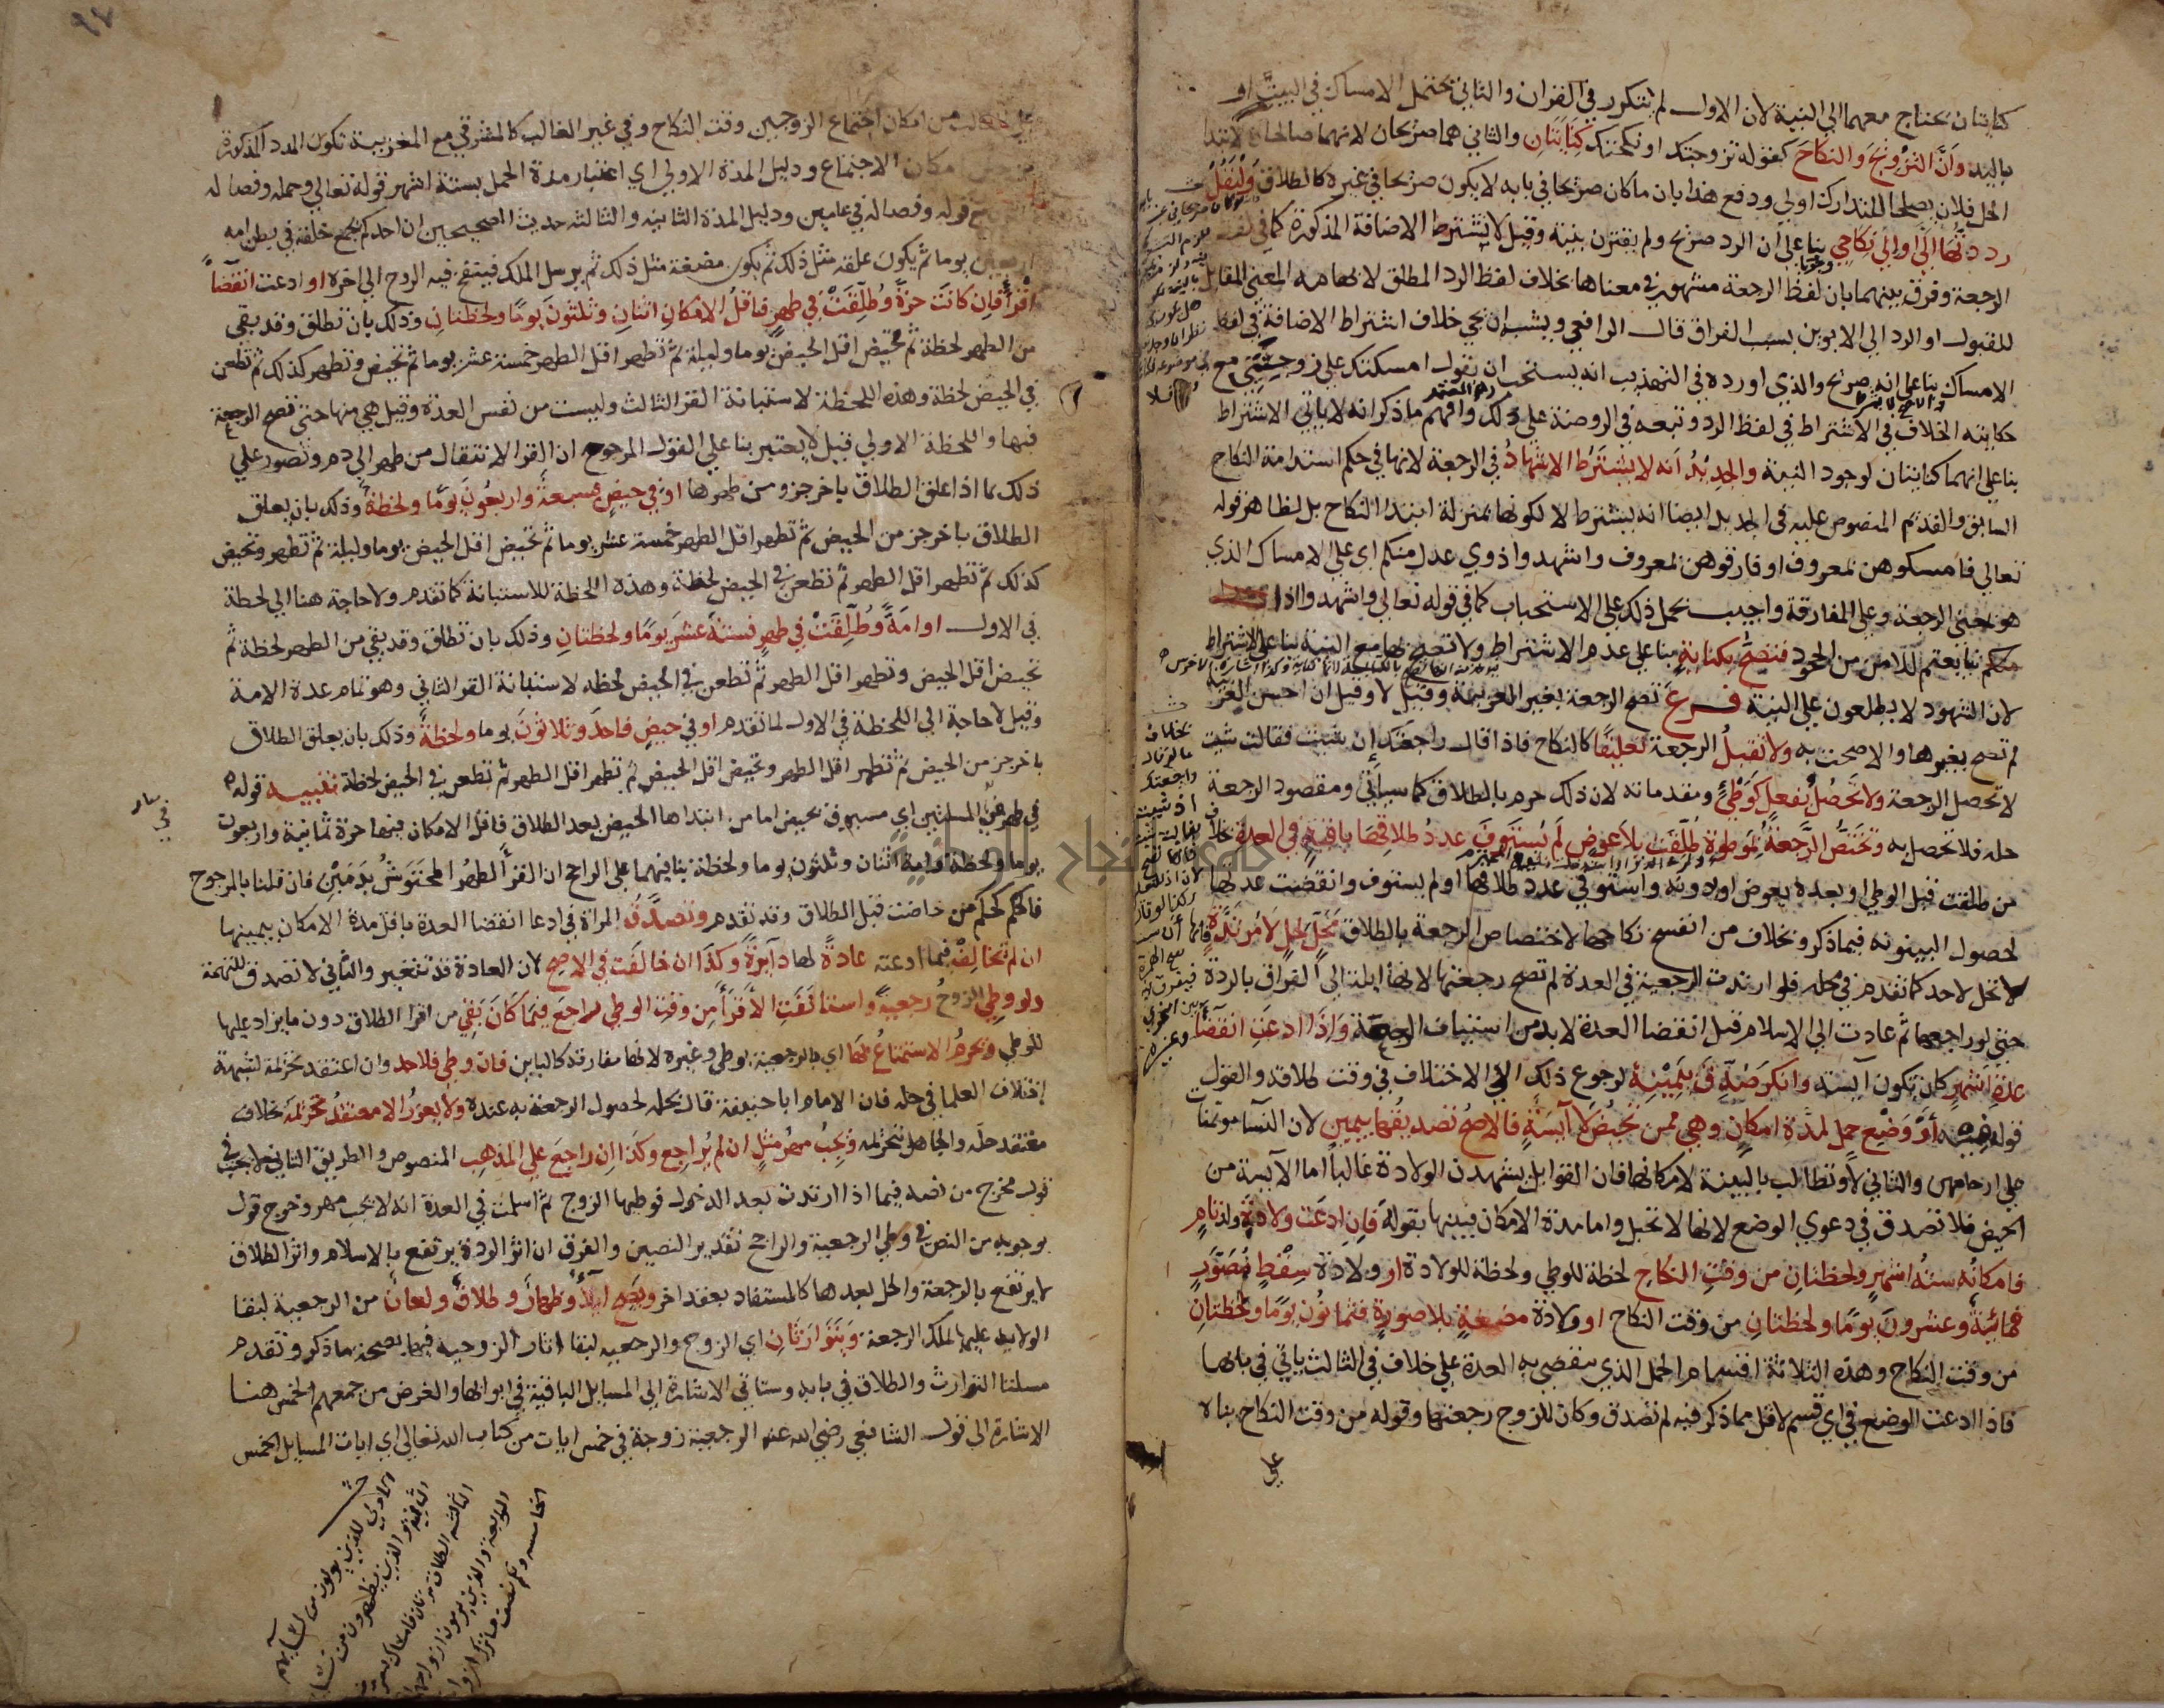 كنايتان يحتاج معهما الى النية لان الاول لم يتكرر في القران والثاني يحتمل الامساك في البيت او
باليد وَاَنَّ التَزْوِيْجَ وَالنكاحَ كقوله تزوجتك او نكحتك كِنَايَتَانِ والثاني هما صريحان لانهما صالحان لابتدا
الحل فلان يصلحا للتدارك اولى ودفع هذا بان ما كان صريحا في بابه لا يكون صريحا في غيره كالطلاق وَلْيَقُلْ
رددتُها اِلَىَّ او اِلى نِكاحِي بنا على ان الرد صريح ولم يقترن بنية وقيل لا تشترط الاضافة المذكورة كما في لفظ
الرجعة وفرق بينهما بان لفظ الرجعة مشهور في معناها بخلاف لفظ الرد المطلق لايهامه المعنى المقابل
للقبول او الرد الى الابوين بسبب الفراق قال الرافعي ويشبه ان يجي خلاف اشتراط الاضافة في لفظ
الامساك بنا على انه صريح والذي اورده في التهذيب انه يستحب ان يقول امسكتك على زوجيتي مع
حكايته الخلاف في الاشتراط في لفظ الرد وتبعه في الروضة على ذلك وافهم ما ذكر انه لا ياتي الاشتراط
بنا على انهما كنايتان لوجود النية والجديدُ اَنه لا يشتَرَطُ الاشهادُ في الرجعة لانها في حكم استدامة النكاح
السابق والقديم المنصوص عليه في الجديد ايضا انه يشترط لا لكونها بمنزلة ابتدا النكاح بل لظاهر قوله
تعالى فامسكوهن بمعروف او فارقوهن بمعروف واشهدوا ذوي عدل منكم اي على الامساك الذي
هو بمعنى الرجعة وعلى المفارقة واجيب بحمل ذلك على الاستحباب كما في قوله تعالى واشهدوا اذا
تبايعتم للامن من الجحود فتصِحُّ بِكنايةٍ بنا على عدم الاشتراط ولا تصح بها مع النية بنا على الاشتراط
لان الشهود لا يطلعون على النية فرع تصح الرجعة بغير العربية وقيل لا وقيل ان احسن العربية
لم تصح بغيرها والا صحت به ولا تقبلُ الرجعة تعليقًا كالنكاح فاذا قال راجعتك اِن شيت فقالت شيت
لا تحصل الرجعة ولا تَحصُلُ بفعلٍ كوَطْئٍ ومقدماته لان ذلك حرم بالطلاق كما سياتي ومقصود الرجعة
حله فلا تحصل به وتختصُّ الرَّجعةُ بِمَوطوةٍ طُلّقت بلا عِوضٍ لَم يُستَوفَ عددُ طلاقِها باقيةٍ في العدة
من طلقت قبل الوطي او بعده بعوض او دونه واستوفي عدد طلاقها او لم يستوف وانقضت عدتها
لحصول البينونه فيما ذكر وبخلاف من انفسخ نكاحها لاختصاص الرجعة بالطلاق مَحَلٍّ لِحلٍ لا مُرتَدَّةٍ
لا تحل لاحد كما تقدم في محله فلو ارتدت الرجعية في العدة لم تصح رجعتها لانها ايلة الى الفراق بالردة
حتى لو راجعها ثم عادت الى الاسلام قبل انقضا العدة لابد من استيناف الرجعة وَاِذَا ادعَتِ انقضآ
عدةِ اَشهُرٍ كان تكون آيسة وانكرَ صُدِّقَ بِيَمِيْنِهِ لرجوع ذلك الى الاختلاف في وقت طلاقه والقول
قوله فيه اَوْ وَضْعِ حمل لمدةِ امكانٍ وهي ممن تَحِيْضُ لا آيسةٍ فالاصحُ تصديقُها بيمين لان النسآ موتمنات
على ارحامهن والثاني لا وتطالب بالبينة لامكانها فان القوابل يشهدن الولادة غالبًا اما الآيسة من
الحيض فلا تصدق في دعوى الوضع لانها لا تحبل واما مدة الامكان فبينها بقوله فإن ادعَت ولادةَ ولد تامٍ
فامكانُه ستةُ اشهرٍ ولحظتانِ من وقتِ النكاحِ لحظة للوطي ولحظة للولادة او ولادةَ سِقْطٍ مُصَوَّرٍ
فمائيةٌ وعشرونَ يومًا ولحظتانِ من وقت النكاح او ولادةَ مضغةٍ بلا صورةٍ فثمانُون يومًا ولحظتانِ
من وقت النكاح وهذه الثلاثة اقسام الحمل الذي تنقضي به العدة على خلاف في الثالث ياتي في بابها
فاذا ادعت الوضع في اي قسم لاقل مما ذكر فيه لم تصدق وكان للزوج رجعتها وقوله من وقت النكاح بناء
على
٩٧
من امكان اجتماع الزوجين وقت النكاح وفي غير الغالب كالمشرقي مع المغربية تكون المدد المذكورة
امكان الاجتماع ودليل المدة الاولى اي اعتبار مدة الحمل بستة اشهر قوله تعالى وحمله وفصاله
قوله وفصاله في عامين ودليل المدة الثانيه والثالثه حديث الصحيحين ان احدكم يجمع خلقه في بطن امه
اربعين يوما ثم يكون علقه مثل ذلك ثم يكون مضغة مثل ذلك ثم يرسل الملك فينفخ فيه الروح الى اخره او ادعت انقضآ
اَقرَأٍ فاِن كانَت حرّةً وطُلِّقَتْ في طهرٍ فاقلُ الامكانِ اثنانِ وثلثُونَ يومًا ولحظتانِ وذلك بان تطلق وقد بقي
من الطهر لحظة ثم تحيض اقل الحيض يوما وليلة ثم تطهر اقل الطهر خمسة عشر يوما ثم تحيض وتطهر كذلك ثم تطعن
في الحيض لحظة وهذه اللحظة لاستبانة القر الثالث وليست من نفس العدة وقيل هي منها حتى تصح الرجعة
فيها واللحظة الاولى قيل لا يعتبر بنا على القول المرجوح ان القر الانتقال من طهر الى دم وتصور على
ذلك بما اذا علق الطلاق باخر جزو من طهرها اوْ في حيضٍ فسبعةٌ واربعُونَ يومًا ولحظةٌ وذلك بان يعلق
الطلاق باخر جز من الحيض ثم تطهر اقل الطهر خمسة عشر يوما ثم تحيض اقل الحيض يوما وليلة ثم تطهر وتحيض
كذلك ثم تطهر اقل الطهر ثم تطعن في الحيض لحظة وهذه اللحظة للاستبانة كما تقدم ولا حاجة هنا الى لحظة
في الاول او امَةً وطُلِّقَتْ في طهرٍ فستةَ عشرَ يومًا ولحظتانِ وذلك بان تطلق وقد بقي من الطهر لحظة ثم
تحيض اقل الحيض وتطهر اقل الطهر ثم تطعن في الحيض لحظه لاستبانة القر الثاني وهو تمام عدة الامة
وقيل لا حاجة الى اللحظة في الاول لما تقدم او في حيضٍ فاحدٌ وثلاثونَ يوما ولحظةٌ وذلك بان يعلق الطلاق
باخر جز من الحيض ثم تطهر اقل الطهر وتحيض اقل الحيض ثم تطهر اقل الطهر ثم تطعن في الحيض لحظة تنبيه قوله
في طهر في المسلتين اي مسبوق بحيض اما من ابتداها الحيض بعد الطلاق فاقل الامكان فيها حرة ثمانية واربعون
يوما ولحظة وامة اثنان وثلثون يوما ولحظة بنا فيهما على الراجح ان القرأ الطهرُ المحتَوَشُ بدَمَيْنِ فان قلنا بالمرجوح
فالحكم كحكم من حاضت قبل الطلاق وقد تقدم وتصدَّقُ المراة في ادعا انقضا العدة باقل مدة الامكان بيمينها
ان لم تخالِفْ فيما ادعته عادةً لها دآيرةً وكَذَا ان خالَفَت في الاصحِ لان العادة قد تتغير والثاني لا تصدق للتهمة
ولو وطِى الزوجُ رجعيةً واستانَفَتِ الأقرَأَ مِن وَقتِ الوطي راجَعَ فيمَا كَانَ بَقِيَ من اقرا الطلاق دون ما يزاد عليها
للوطي ويَحْرمُ الاستمتاعُ بها اي بالرجعية بوطي وغيره لانها مفارقة كالباين فان وطي فلا حد وان اعتقد تحريمه لشبهة
اختلاف العلما في حله فان الامام ابا حنيفة قال بحله لحصول الرجعة به عنده ولا يُعزَّرُ الا معتقدُ تَحريمه بخلاف
معتقد حله والجاهل بتحريمه ويَجِبُ مهرُ مثلٍ ان لم يُراجِع وكذَا اِن راجَعَ على المذهبِ المنصوص والطريق الثاني لا يجب في
قول مخرج من نصه فيما اذا ارتدت بعد الدخول فوطيها الزوج ثم اسلمت في العدة انه لا يجب مهر وخرج قول
بوجوبه من النص في وطي الرجعية والراجح تقدير النصين والفرق ان اثر الردة يرتفع بالاسلام واثر الطلاق
لا يرتفع بالرجعة والحل بعدها كالمستفاد بعقد اخر ويَصِحُ ايلآٌ وظهارٌ وطلاقٌ ولعانٌ من الرجعية لبقا
الولايه عليها بملك الرجعة وَيَتَوَارَثَانِ اي الزوج والرجعيه لبقا اثار الزوجيه فيها بصحة ما ذكر وتقدم
مسلتا التوارث والطلاق في بابه وستاتي الاشارة الى المسايل الباقية في ابوابها والغرض من جمعهم الخمس هنا
الاشارة الى قول الشافعي رضي الله عنه الرجعية زوجة في خمس ايات من كتاب الله تعالى اي ايات المسايل الخمس
الاولى للذين يولون من نسآيهم
الثانيه والذين يظهرون من نسا
الثالثه الطلاق مرتان فامساك بمعر
الرابعة والذين يرمون ازواجهم
الخامسه ولكم نصف ما ترك ازوا